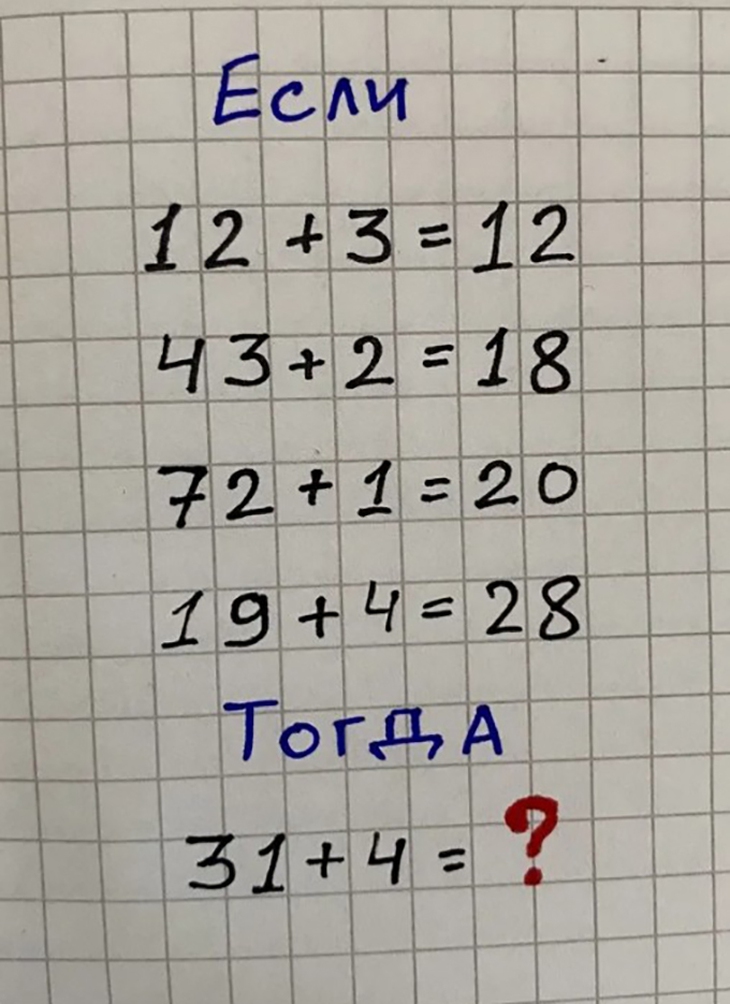 Если
12 + 3 = 12
43 + 2 = 18
72 + 1 = 20
19 + 4 = 28
Тогда
31 + 4 = ?